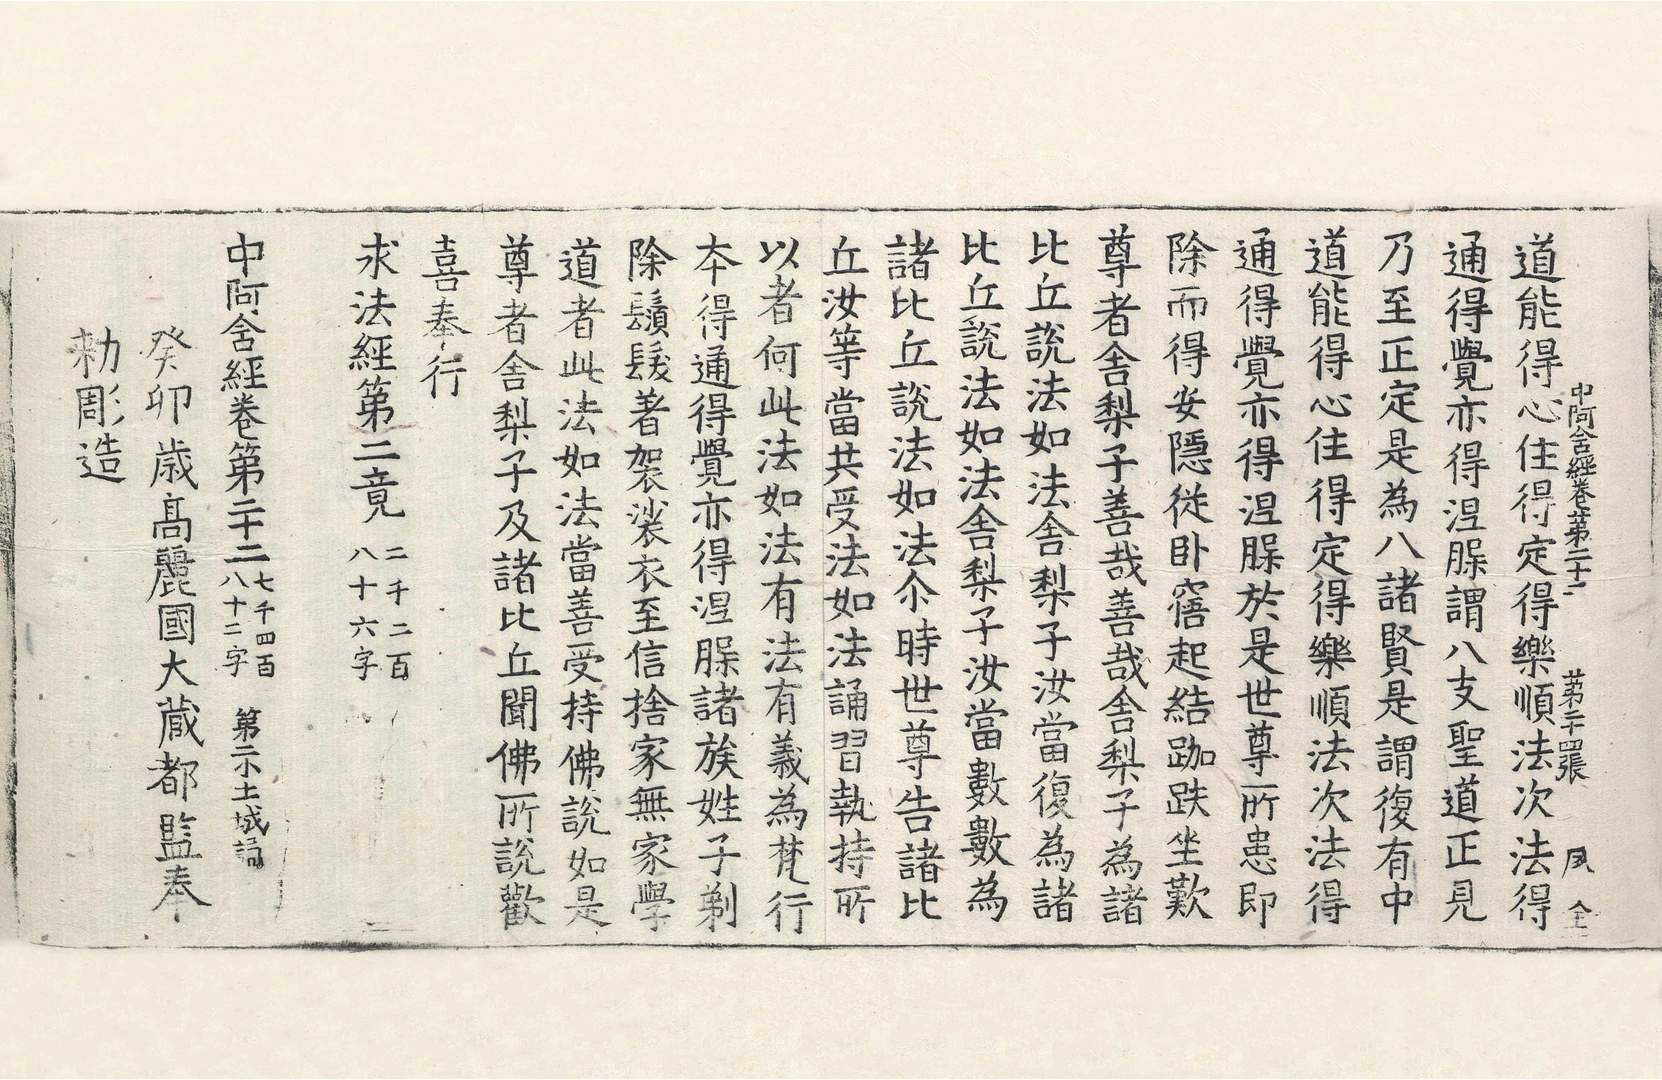 中阿含經卷第二十二 第二十四張 夙 全
道能得心住得定得樂順法次法得
通得覺亦得涅槃謂八支聖道正見
乃至正定是為八諸賢是謂復有中
道能得心住得定得樂順法次法得
通得覺亦得涅槃於是世尊所患即
除而得安隱從臥寤起結跏趺坐歎
尊者舍梨子善哉善哉舍梨子為諸
比丘說法如法舍梨子汝當復為諸
比丘說法如法舍梨子汝當數數為
諸比丘說法如法尒時世尊告諸比
丘汝等當共受法如法誦習執持所
以者何此法如法有法有義為梵行
本得通得覺亦得涅槃諸族姓子剃
除鬚髮著袈裟衣至信捨家無家學
道者此法如法當善受持佛說如是
尊者舍梨子及諸比丘聞佛所說歡
喜奉行
求法經第二竟 二千二百
八十六字
中阿含經卷第二十二 七千四百
八十二字 第二小土城誦
癸卯歲高麗國大藏都監奉
勑彫造